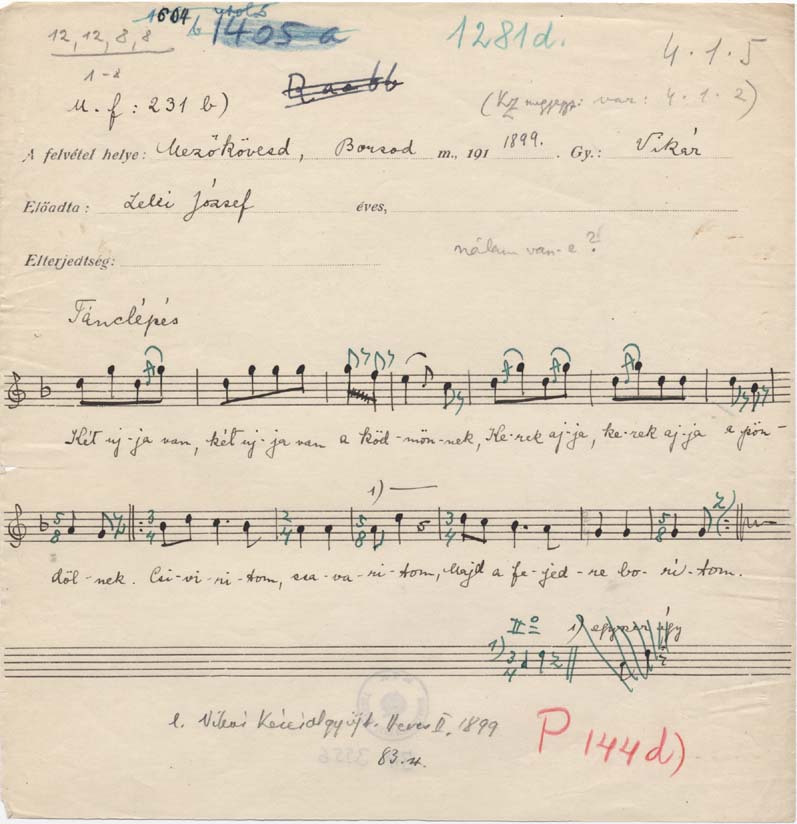 1604 utolsó
12, 12, 8, 8 b 1405 a 1281 d. 4·1·5
1-8 Raabb
M. f: 231 b) (KZ megjegyz: var: 4·1·2)
A felvétel helye: Mezőkövesd, Borsod m., 191 1899. Gy.: Vikár
Előadta: Lelei József éves,
Elterjedtség: nálam van-e?
Tánclépés
Két uj-ja van, két uj-ja van a köd-mön-nek, Ke-rek aj-ja, ke-rek aj-ja a pön-
1)
5/8 3/4 2/4 5/8 3/4 5/8 2)
döl-nek. Csi-vi-ri-tom, csa-va-ri-tom, Majd a fe-jed-re bo-rí-tom.
IIº 1) egyszer így
1) 3/4
l. Vikár Heves II. 1899
83. sz.
P 144 d)